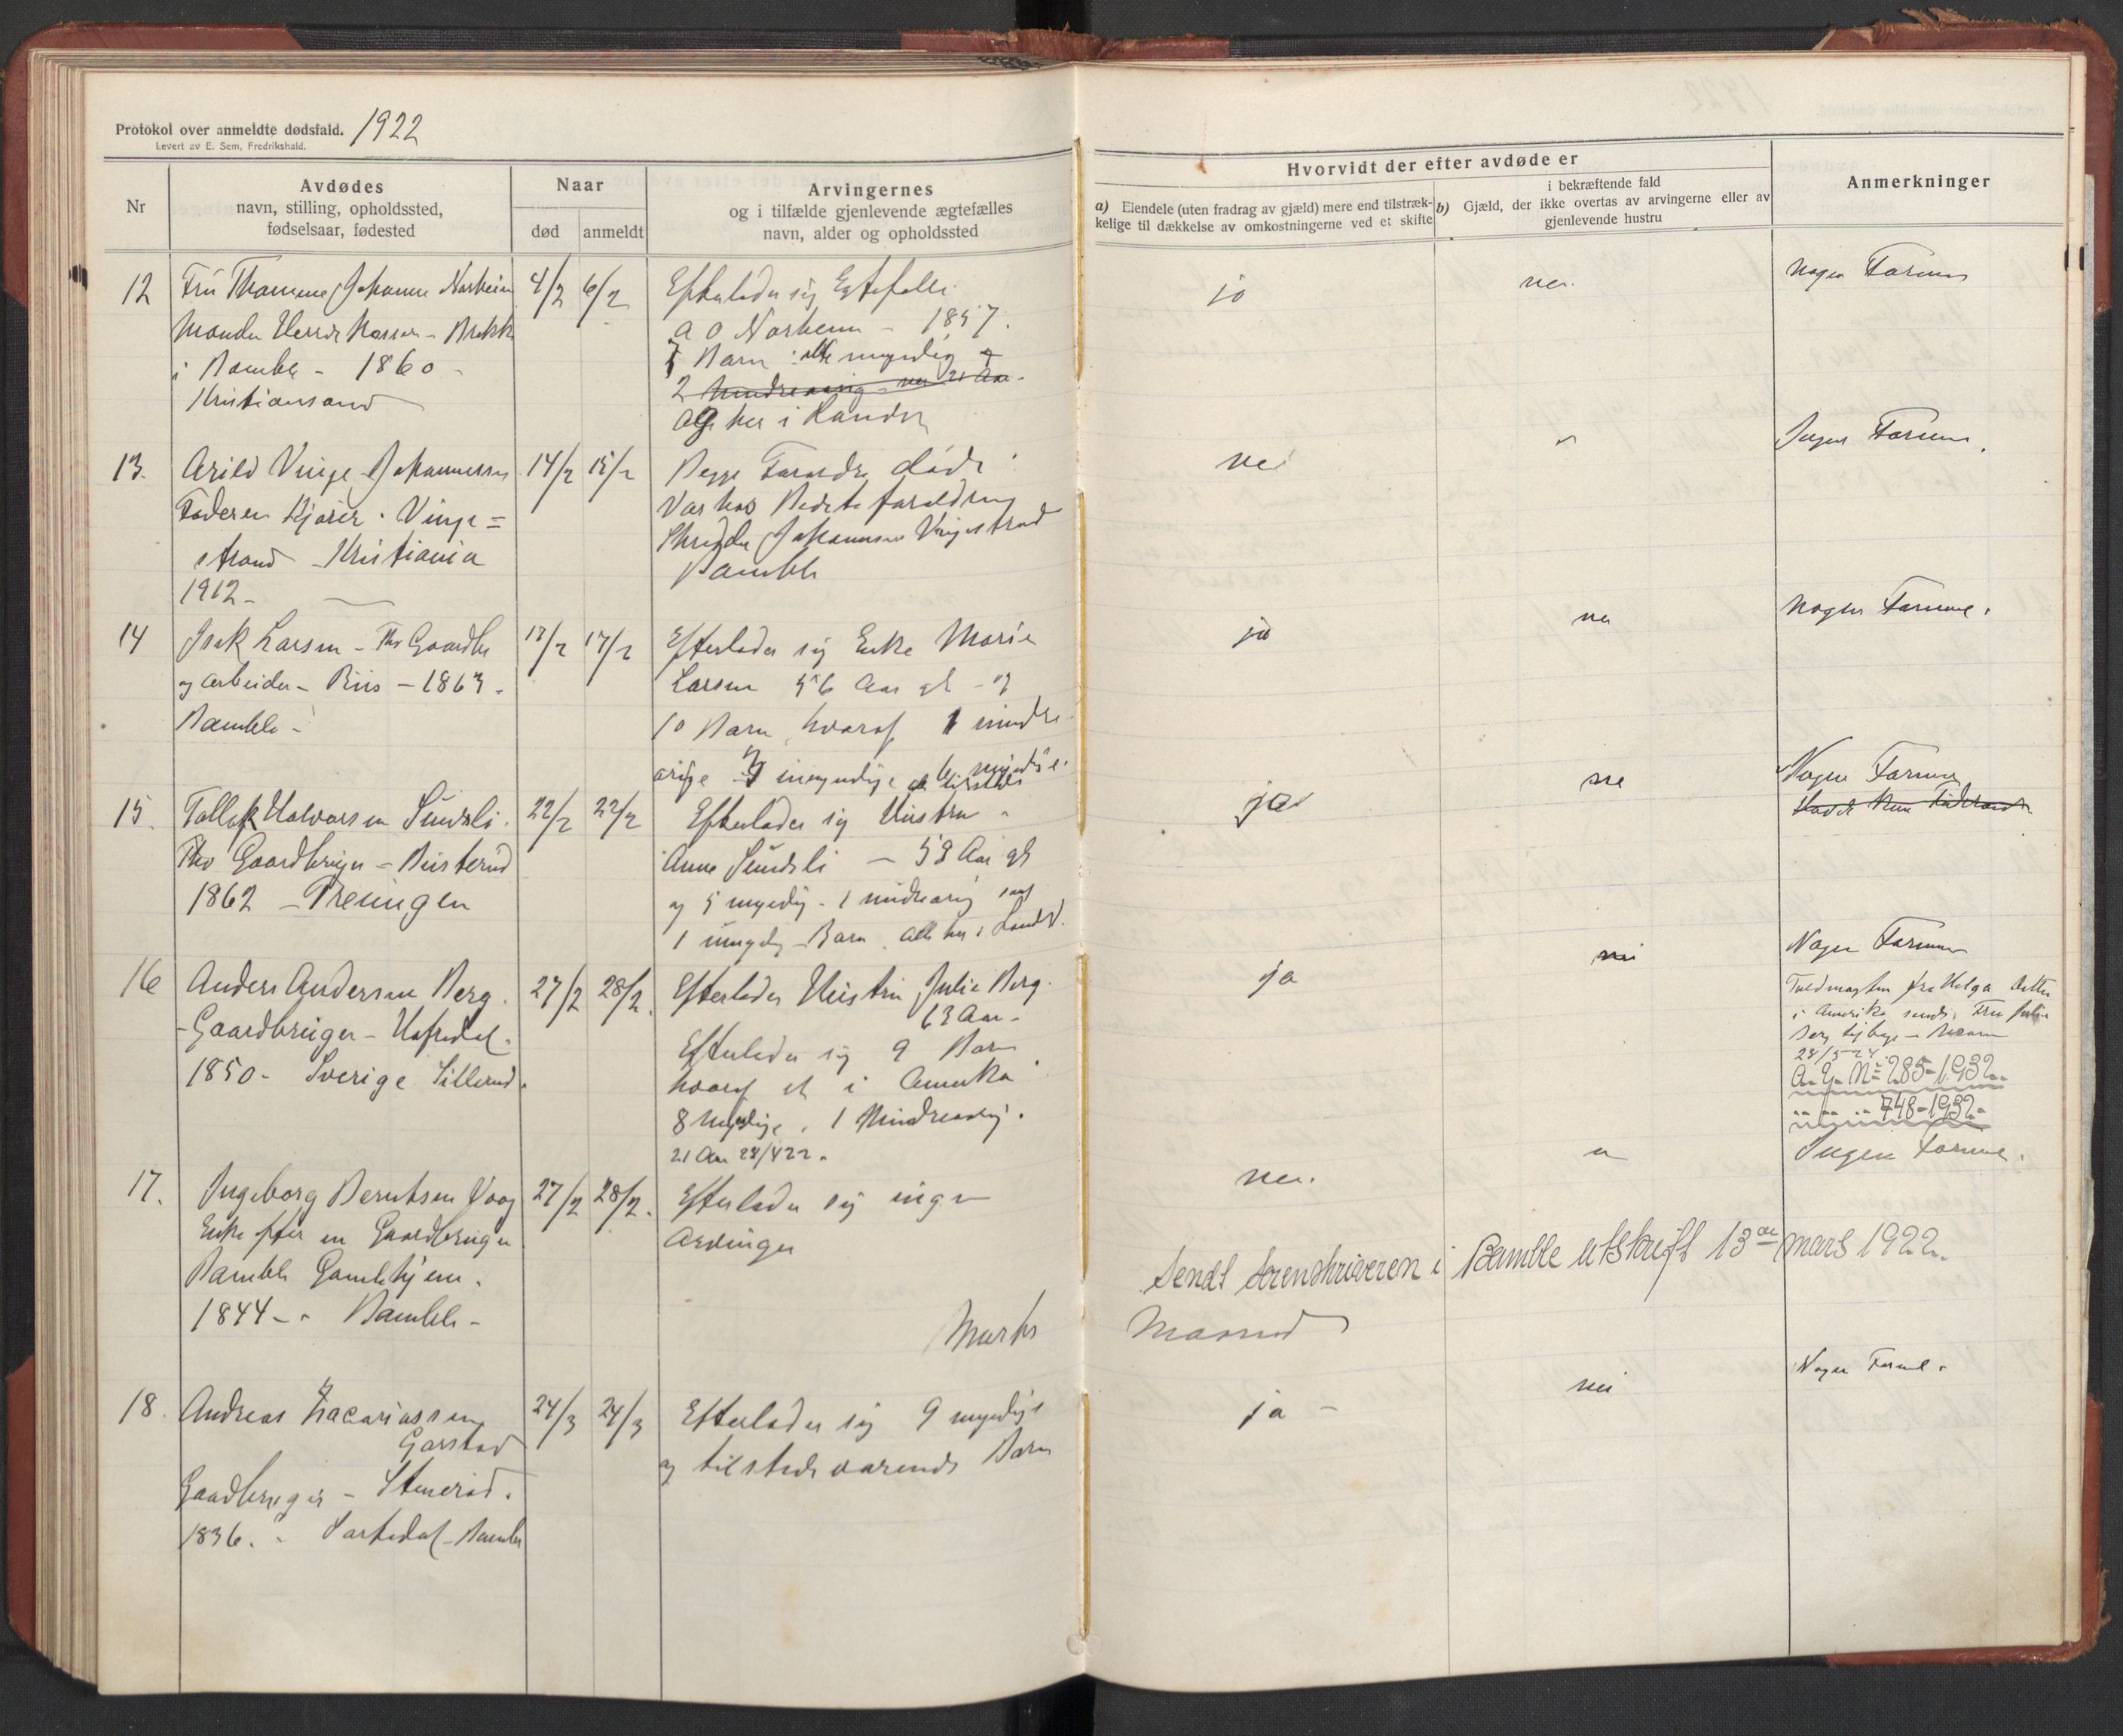 Protokol over anmeldte dødsfald. 1922
Levert av E. Sem, Fredrikshald.
Nr
Avdødes
navn, stilling, opholdssted,
fødselsaar, fødested
Naar
død
anmeldt
Arvingernes
og i tilfælde gjenlevende ægtefælles
navn, alder og opholdssted
Hvorvidt der efter avdøde er
a) Eiendele (uten fradrag av gjæld) mere end tilstræk-
kelige til dækkelse av omkostningerne ved et skifte
i bekræftende fald
b) Gjæld, der ikke overtas av arvingerne eller av
gjenlevende hustru
Anmerkninger
12
Fru Johanne Norheim
i Bamble - 1860 -
Kristiansand
4/2 6/2
Efterlader sig Egtefelle
A O Norheim - 1857.
7 Barn alle myndig
2 Mindreaarig 21 Aar.
Alle her i Landet
jo
nei
Nogen Formue
13.
Arild Vinje Johannessen
Faderen Kjører. Vinje=
strand - Kristiania
1912 -
14/2 15/2
Begge Forældre døde
Var hos Bedsteforældrene
Skredder Johannsen Vinjestrand
Bamble
nei
Ingen Formue.
14
Isak Larsen - Fhv Gaardbr
og Arbeider - Riis - 1863 -
Bamble -
13/2 17/2
Efterlader sig Enke Marie
Larsen 56 Aar gl - og
10 Barn hvoraf 1 mindre-
arige 3 umyndige 6 myndige.
jo
nei
Nogen Formue.
15.
Tollef Halvorsen Sundsli.
Fhv Gaardbruger - Busterud
1862 - Treungen
22/2 22/2
Efterlader sig Hustru
Anne Sundsli - 58 Aar gl
og 5 myndig - 1 mindreaarig samt
1 umyndig - Barn. Alle her i Landet.
ja
nei
Nogen Formue
16
Anders Andersen Berg.
- Gaardbruger - Hafredal.
1850 - Sverige Sillerud.
27/2 28/2.
Efterlader Hustru Julie Berg.
63 Aar -
Efterlader sig 9 Barn
hvoraf et i Amerika
8 Myndige, 1 Mindreaarig.
21 Aar 28/4 22.
ja
nei
Nogen Formue
Fuldmagten fra Helga Witter
i Amerika sendt Fru Julie
Berg
28/5 24.
A. J. № 285-1932.
" " " 748-1932.
17.
Ingeborg Berntsen Vaag
Enke efter en Gaardbruger
Bamble Gamlehjem.
1844 - Bamble -
27/2 28/2.
Efterlader sig ingen
Arvinger
nei.
Ingen Formue.
Sendt Sorenskriveren i Bamble utskrift 13de mars 1922.
Marts Maaned
18.
Andreas Zacariassen
Garstad
Gaardbruger - Stenerød.
1836. - Bamble
24/3 24/3
Efterlader sig 9 myndige
og tilstedeværende Barn
ja -
nei
Nogen Formue.